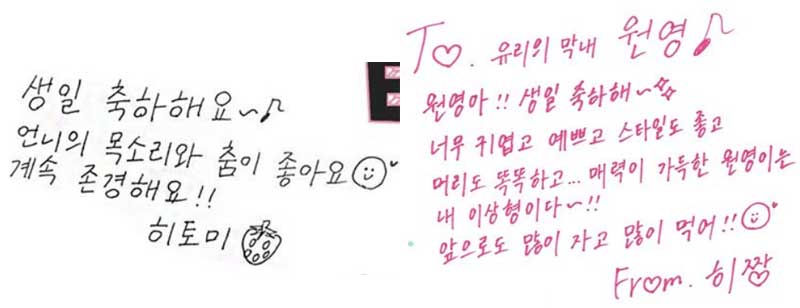 생일 축하해요~♪
언니의 목소리와 춤이 좋아요
계속 존경해요!!
히토미
E
To. 유리의 막내 원영♪
원영아!! 생일 축하해~☆
너무 귀엽고 예쁘고 스타일도 좋고
머리도 똑똑하고... 매력이 가득한 원영이는
내 이상형이다~!!
앞으로도 많이 자고 많이 먹어!!
From. 히짱